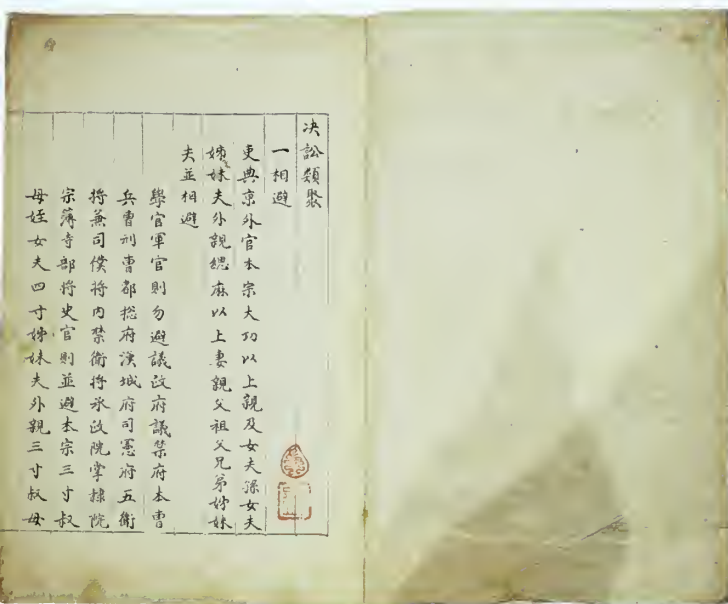 決訟類聚
一相避
吏典京外官本宗大功以上親及女夫孫女夫
姊妹夫外親緦麻以上妻親父祖父兄弟姊妹
夫並相避
學官軍官則勿避議政府議禁府本曹
兵曹刑曹都摠府漢城府司憲府五衛
將兼司僕將內禁衛將承政院掌隷院
宗薄寺部將史官則並避本宗三寸叔
母姪女夫四寸姊妹夫外親三寸叔母